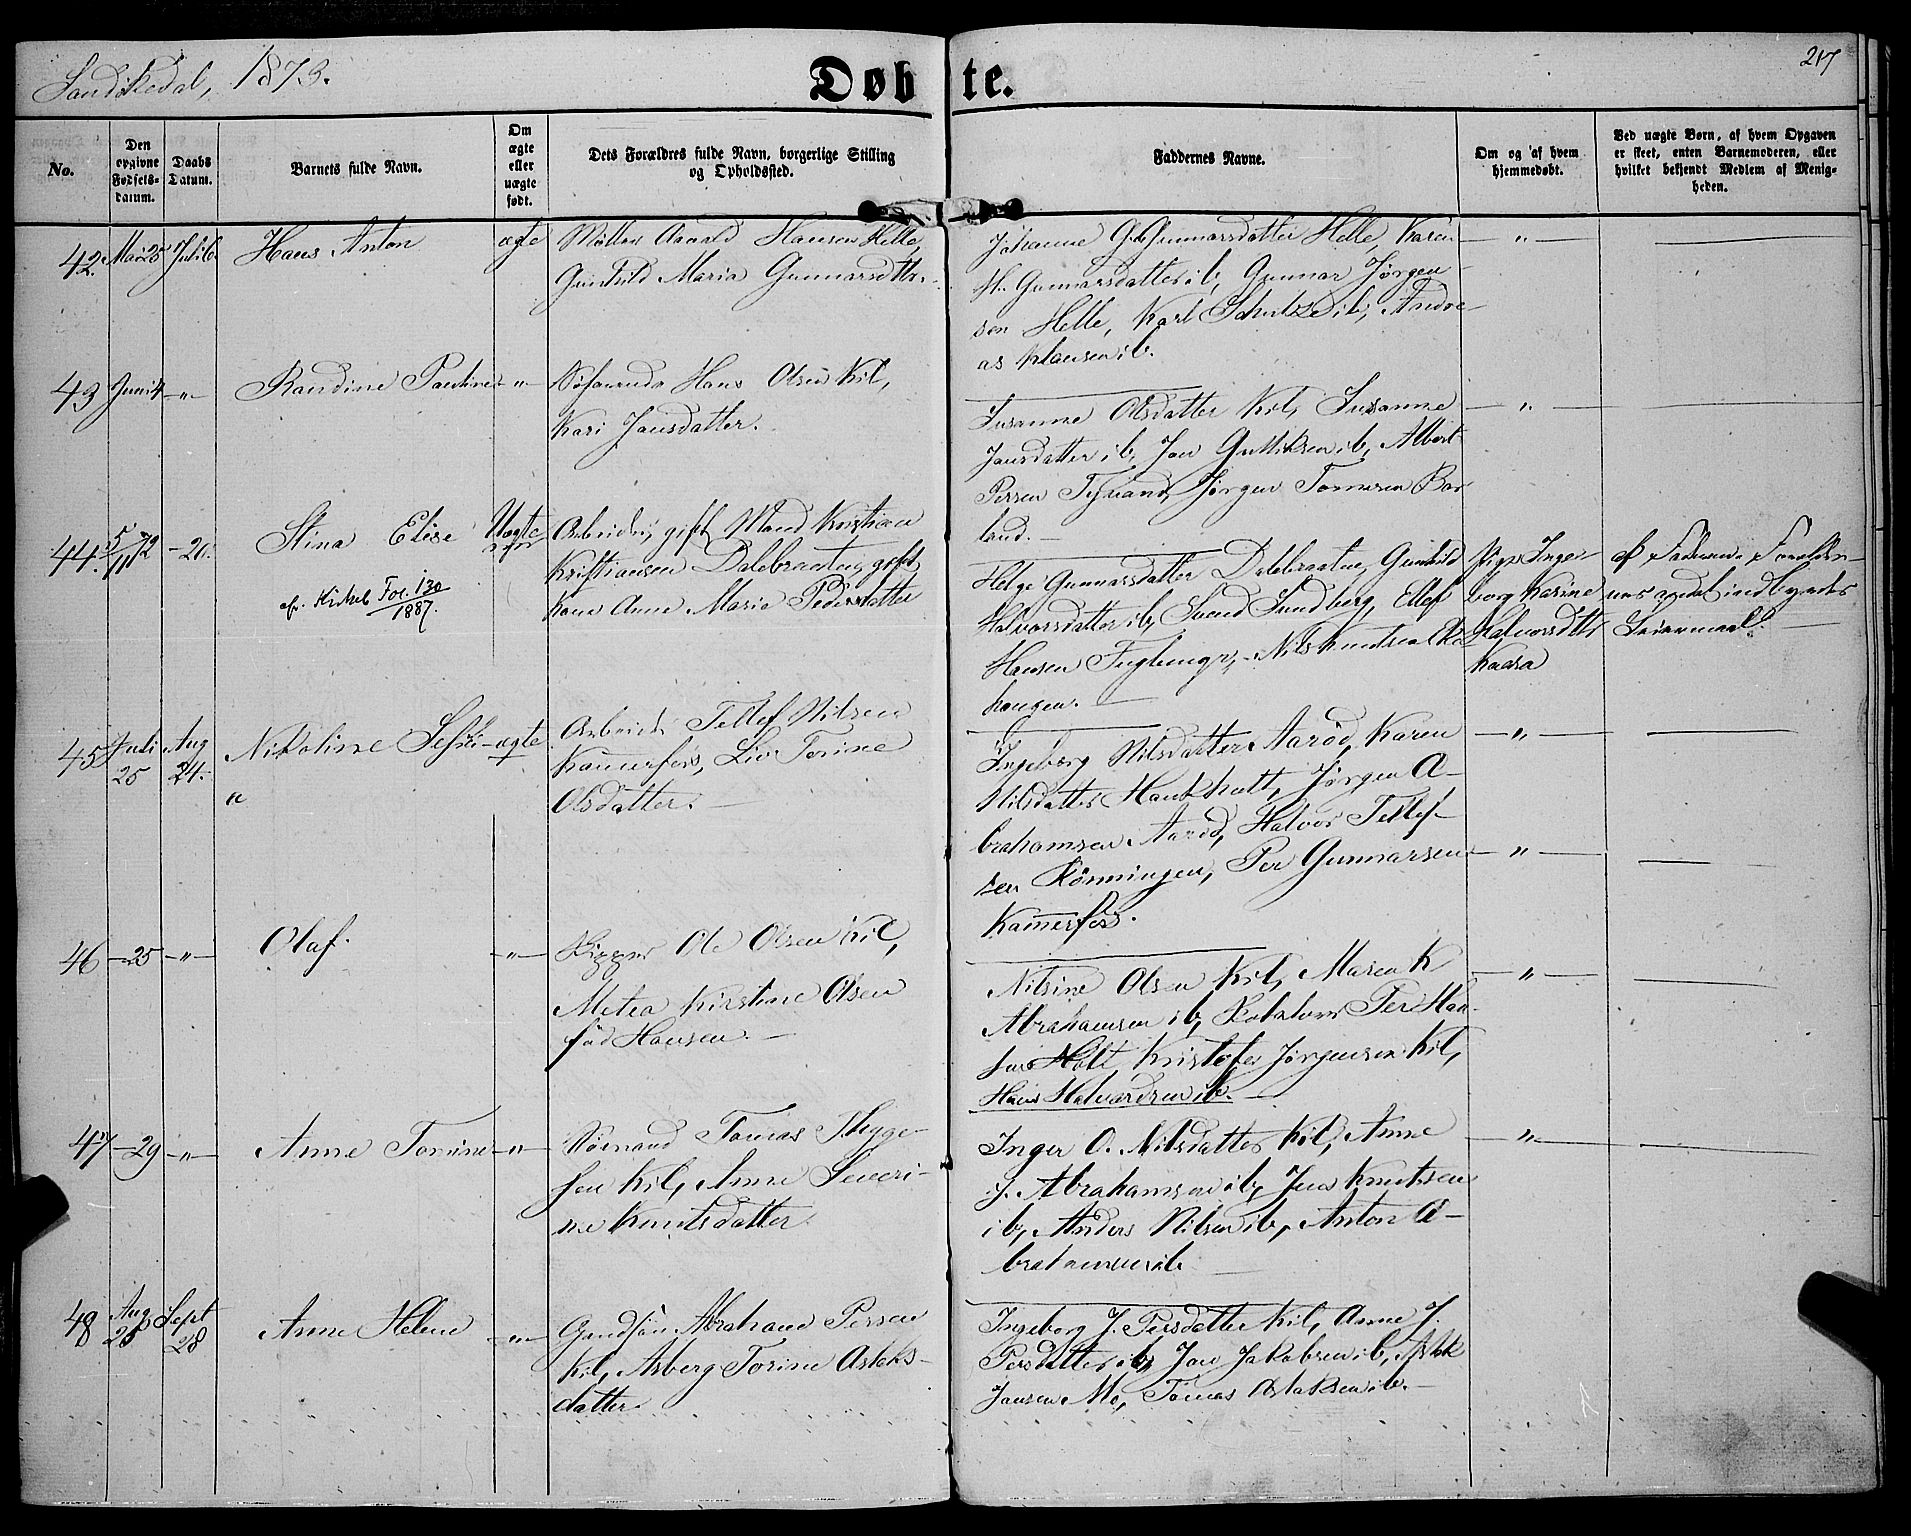 Sandøkedal, 1873.
Døbte.
217
No.
Den opgivne Fødsels-datum.
Daabs Datum.
Barnets fulde Navn.
Om ægte eller uægte født.
Dets Forældres fulde Navn, borgerlige Stilling og Opholdsted.
Faddernes Navne.
Om og af hvem hjemmedøbt.
Ved uægte Børn, af hvem Opgaven er skeet, enten Barnemoderen, eller hvilket bekjendt Medlem af Menigheden.
42. Mai 25 Juli 6 Hans Anton ægte
Hansen Helle,
Gunhild Maria Gunnarsdttr.
Johanne G. Gunnarsdatter Helle, Karen
H. Gunnarsdatter ib, Gunnar Jørgen
sen Helle, Karl Schultze ib, Andre-
as Klausen ib.
— " —
43 Juni 4 — " — Randine Pauline — " —
Søfarende Hans Olsen Kil,
Kari Jansdatter.
Susanne Olsdatter Kil, Susanne
Jansdatter ib, Jan Gulliksen ib, Albert
Persen Tisvand, Jørgen Tomesen Bar
land.
— " —
44. 5/11 72 — 20. Stina Elise Uægte
cf. Kirkeb Fol. 130/1887.
Arbeider, gift Mand Kristian
Kristiansen Dalebraaten, gift
Kone Anne Maria Pedersdatter
Helge Gunnarsdatter Dalebraaten, Gunhild
Halvorsdatter ib, Svend Sundberg, Ellef
Hansen Fuglung, Nils Knutsen
haugen.
Pige Inge-
borg Karine
Halvorsdttr
Kaasa
af Faderen. Forældre-
nes andet indbyrdes
Leiermaal.
45 Juli 25 Aug 24. Nikoline Sefri- ægte
a
Arbeider Tellef Nilsen
Kamerfos, Liv Torine
Olsdatter.
Ingeborg Nilsdatter Aarød, Karen
Nilsdatter Haukholt, Jørgen A-
brahamsen Aarød, Halvor Tellef-
sen Rønningen, Per Gunnarsen
Kamerfos.
— " —
— " —
46 — 25 — " — Olaf. — " —
Skipper Ole Olsen Kil,
Metea Kirstine Olsen
fød Hansen.
Nilsine Olsen Kil, Maren K
Abrahamsen ib, Per Han
sen Holt, Kristofer Jørgensen Kil,
Hans Halvardsen ib.
— " —
47 — 29 — " — Anne Tomine — " —
Sømand Tomas Thyge-
sen Kil, Anne Severi-
ne Knutsdatter.
Inger O. Nilsdatter Kil, Anne
J. Abrahamsen ib, Jens Knutsen
ib, Anders Nilsen ib, Anton A-
brahamsen ib
— " —
48 Aug 25 Sept 28 Anne Helene — " —
Abraham Persen
Kil, Asberg Torine Aslaks-
datter.
Ingeborg J. Persdatter Kil, Anne J.
Persdatter ib, Jan Jakobsen ib, Aslak
Jansen Mo, Tomas Aslaksen ib.